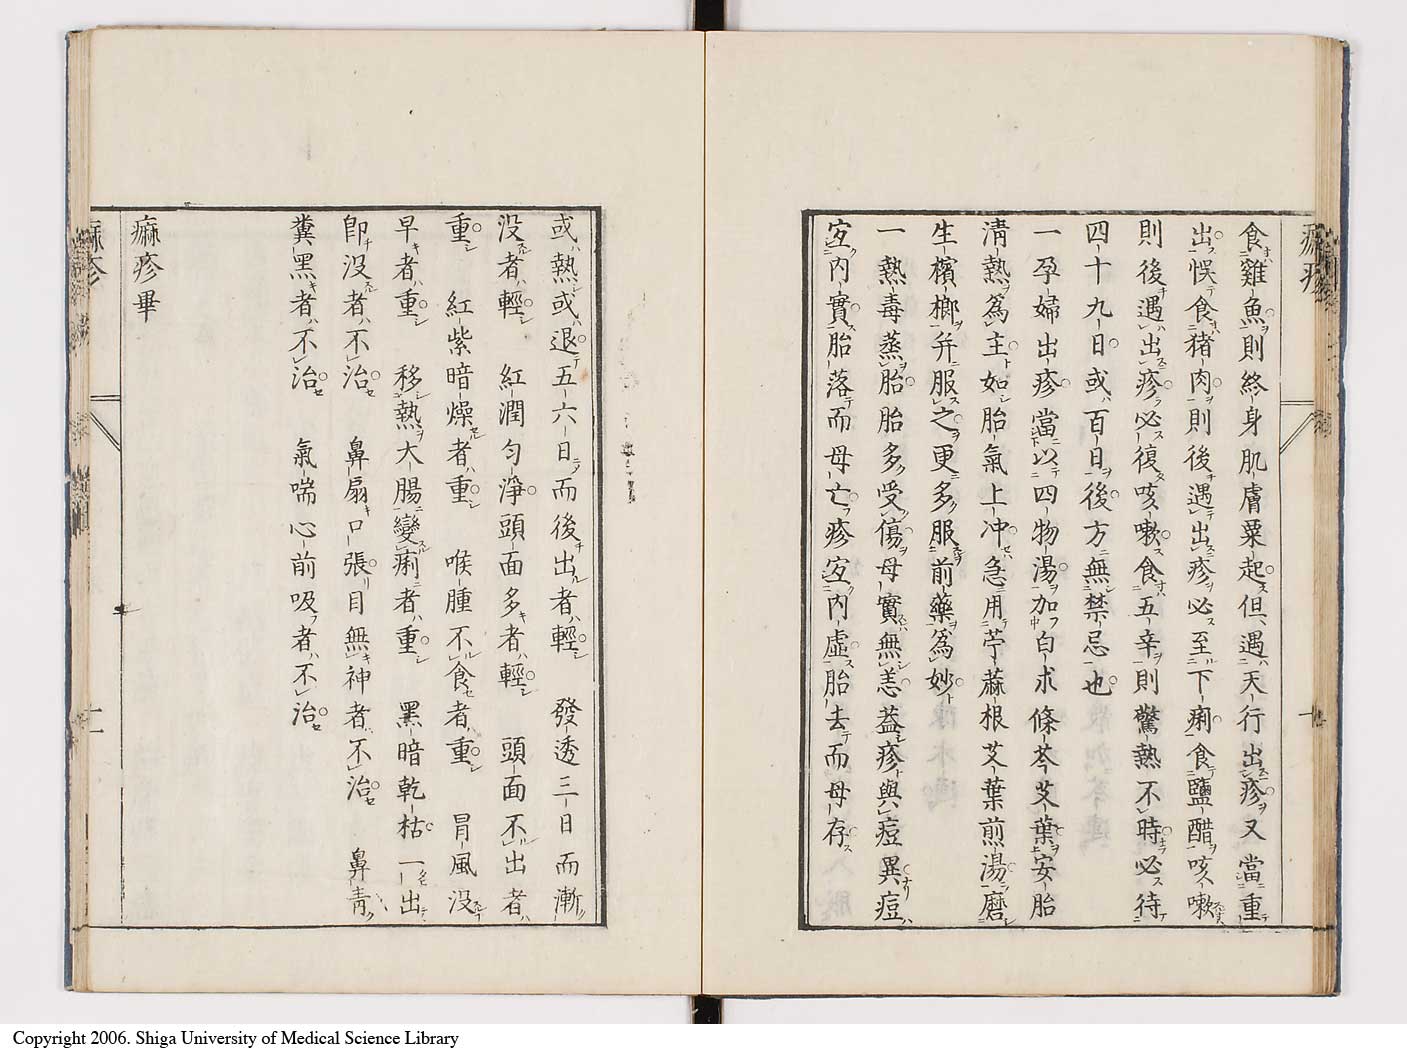 食雞魚則終身肌膚粟起但遇天行出疹又當重
出悞食猪肉則後遇出疹必至下痢食鹽醋咳嗽
則後遇出疹必復咳嗽食五辛則驚熱不時必待
四十九日或百日後方無禁忌也
一孕婦出疹當以四物湯加白朮條芩艾葉安胎
清熱爲主如胎氣上冲急用苧蔴根艾葉煎湯磨
生檳榔并服之更多服前藥爲妙
一熱毒蒸胎胎多受傷母實無恙葢疹與痘異痘
宜内實胎落而母亡疹宜内虛胎去而母存
或熱或退五六日而後出者輕　發透三日而漸
没者輕　紅潤匀淨頭面多者輕　頭面不出者
重　紅紫暗燥者重　喉腫不食者重　冒風没
早者重　移熱大腸變痢者重　黑暗乾枯一出
卽没者不治　鼻扇口張目無神者不治　鼻靑
糞黑者不治　氣喘心前吸者不治
痲疹畢
痲疹
Copyright 2006. Shiga University of Medical Science Library